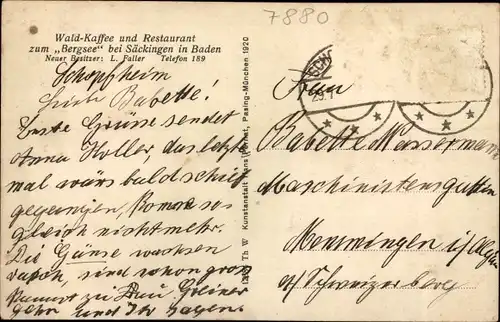 7880
Wald-Kaffee und Restaurant
zum „Bergsee“ bei Säckingen in Baden
Neuer Besitzer: L. Faller Telefon 189
Schopfheim
Liebe Babette!
Beste Grüsse sendet
Anna Holler, das letzte
mal wärs bald schief
gegangen, komm so
gleich nicht mehr.
Die Gänse wachsen
rasch, sind schon gross
kannst zu Frau Greiner
gehn und Ihr sagen.
Kunstanstalt Hans Pernat, Pasing-München 1920
Frau
Babette Wassermann
Maschinistensgattin
Memmingen i/Allgäu
a/ Schweizerberg